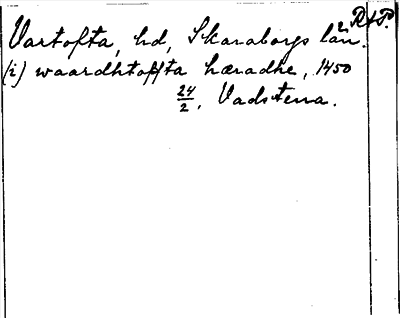 Vartofta, hd, Skaraborgs län.
(i) waardhtoffta hæradhe, 1450
24/2, Vadstena.